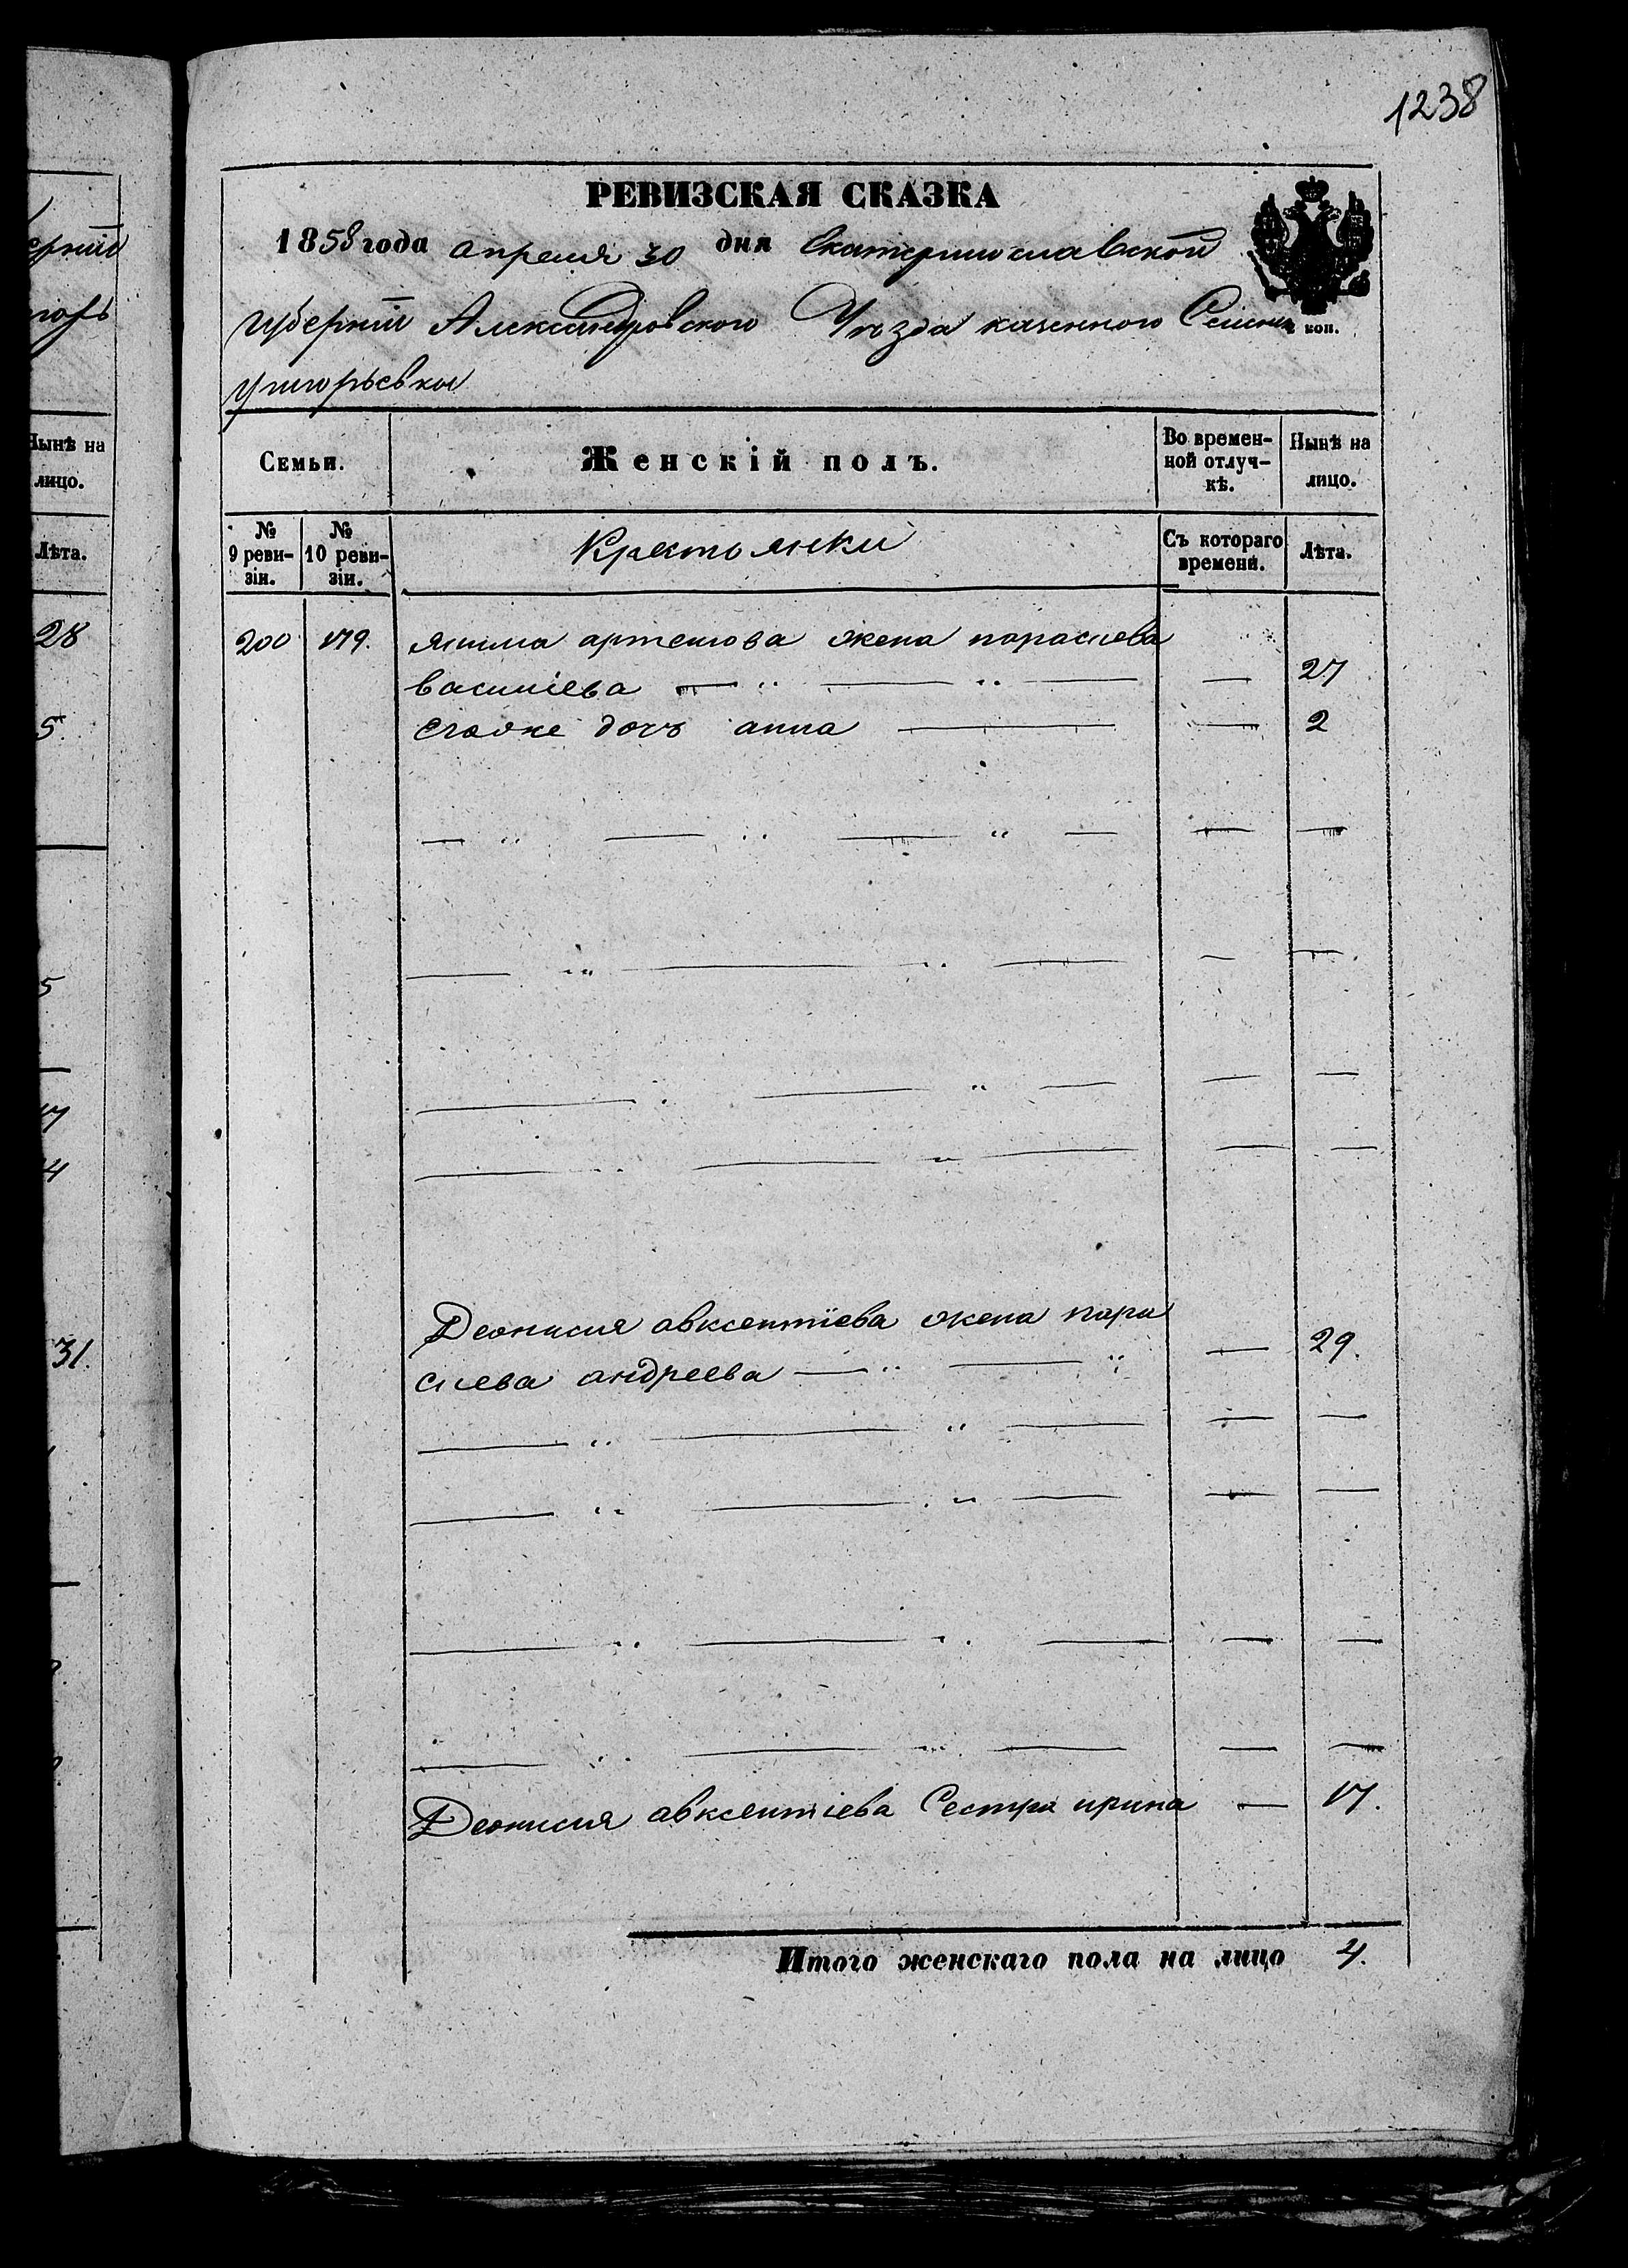 1238
РЕВИЗСКАЯ СКАЗКА
1858 года апреля 30 дня Екатеринославской
губернiи Александровского Уѣзда казенного Селенiя
коп.
григорьевки
Семьи.
Женскій полъ.
Во времен-
ной отлуч-
кѣ.
Нынѣ на
лицо.
№
9 реви-
зіи.
№
10 реви-
зіи.
Крестьянки
Съ котораго
времени.
Лѣта.
200 179. якима артемова жена парасцева
василіева — — — — 27
егоже дочь анна — — 2
Деонисия авксентіева жена пара
сцева андреева — — — 29.
Деонисия авксентіева Сестра ирина — 17.
Итого женскаго пола на лицо 4.
ернiи
Нынѣ на
лицо.
Лѣта.
28
5
5
17
14
31.